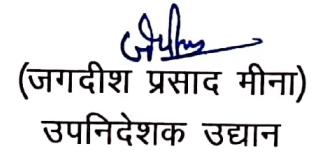 (जगदीश प्रसाद मीना)
उपनिदेशक उद्यान